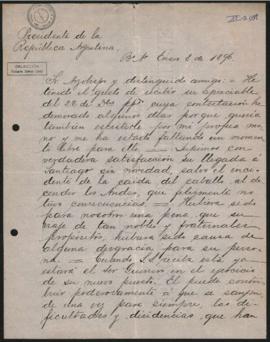 Presidente de la
República Argentina.
Bs. As. Enero 8 de 1896.
Sr. Azpeitia y distinguido amigo: He
tenido el gusto de recibir su apreciable
del 22 de Dbre ppdo cuya contestacion he
demorado algunos dias por que queria
tambien escribirle por mi propia ma-
no y me ha estado faltando un momen-
to libre para ello. Supimos con
verdadera satisfaccion su llegada á
Santiago sin novedad, salvo el inci-
dente de la caida del caballo al des-
cender los Andes, que felizmente no
tuvo consecuencias. Hubiera si-
do para nosotros una pena que su
viaje de tan nobles y fraternales
propósitos, hubiera sido causa de
alguna desgracia para su perso-
na. Cuando Vd. reciba esta ya
estará el Sor Guerrero en el ejercicio
de su nuevo puesto. El puede contri-
buir poderosamente á que se zanjen
de una vez para siempre, las di-
ficultades y disidencias, que han